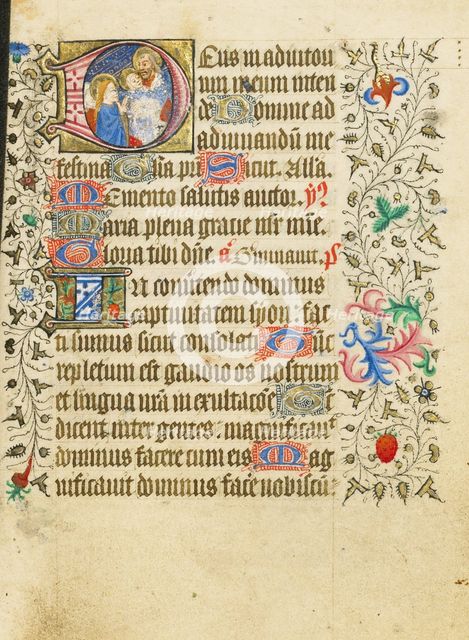 Deus in adiutori
um meum inten
de Domine ad
adiuuandū me
festina Gl̄ia pri Sicut. All̄a.
Memento salutis auctor. ℣
Maria plena gracie mīe.
Gloria tibi dn̄e. a Ps
In conuertendo dominus
captiuitatem syon: fac
ti sumus sicut consolati Tūc
repletum est gaudio os nostrum
et lingua nr̄a in exultacōe Tūc
dicent inter gentes. magnificauit
dominus facere cum eis Mag
nificauit dominus face nobiscū: